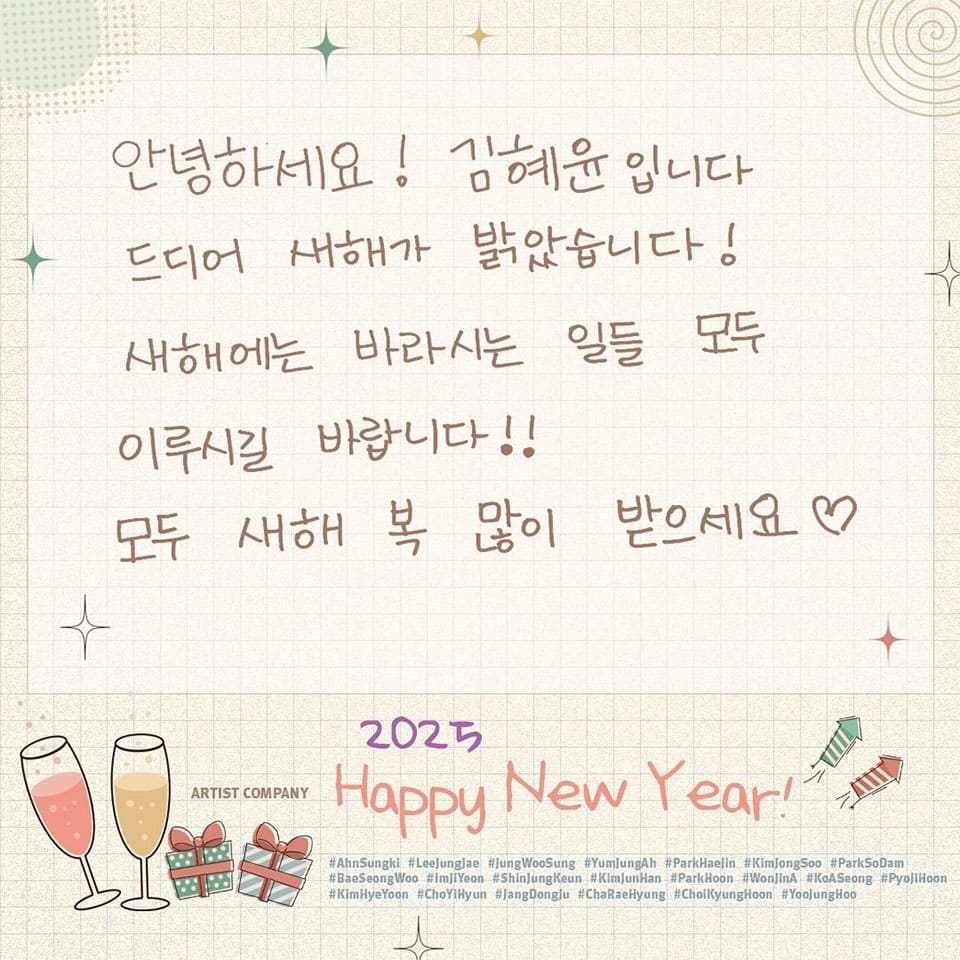 안녕하세요! 김혜윤입니다
드디어 새해가 밝았습니다!
새해에는 바라시는 일들 모두
이루시길 바랍니다!!
모두 새해 복 많이 받으세요♡
2025
ARTIST COMPANY
Happy New Year!
#AhnSungki #LeeJungJae #JungWooSung #YumJungAh #ParkHaeJin #KimJongSoo #ParkSoDam
#BaeSeongWoo #ImJiYeon #ShinJungKeun #KimJunHan #ParkHoon #WonJinA #KoASeong #PyoJiHoon
#KimHyeYoon #ChoYiHyun #JangDongJu #ChaRaeHyung #ChoiKyungHoon #YooJungHoo